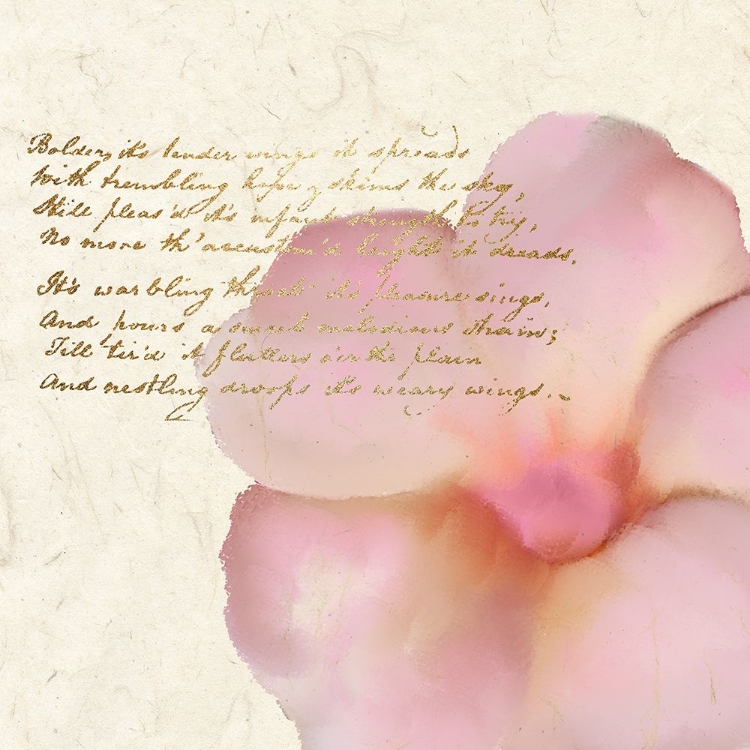 Bolder, its tender wings it spreads
With trembling hope, skims the sky,
Still pleas'd it's infant strength to try,
No more th'accustom'd height it dreads,
It's warbling throat it's pleasure sings,
And pours a sweet melodious strain;
Till tir'd it flutters o'er the plain
And nestling droops its weary wings.